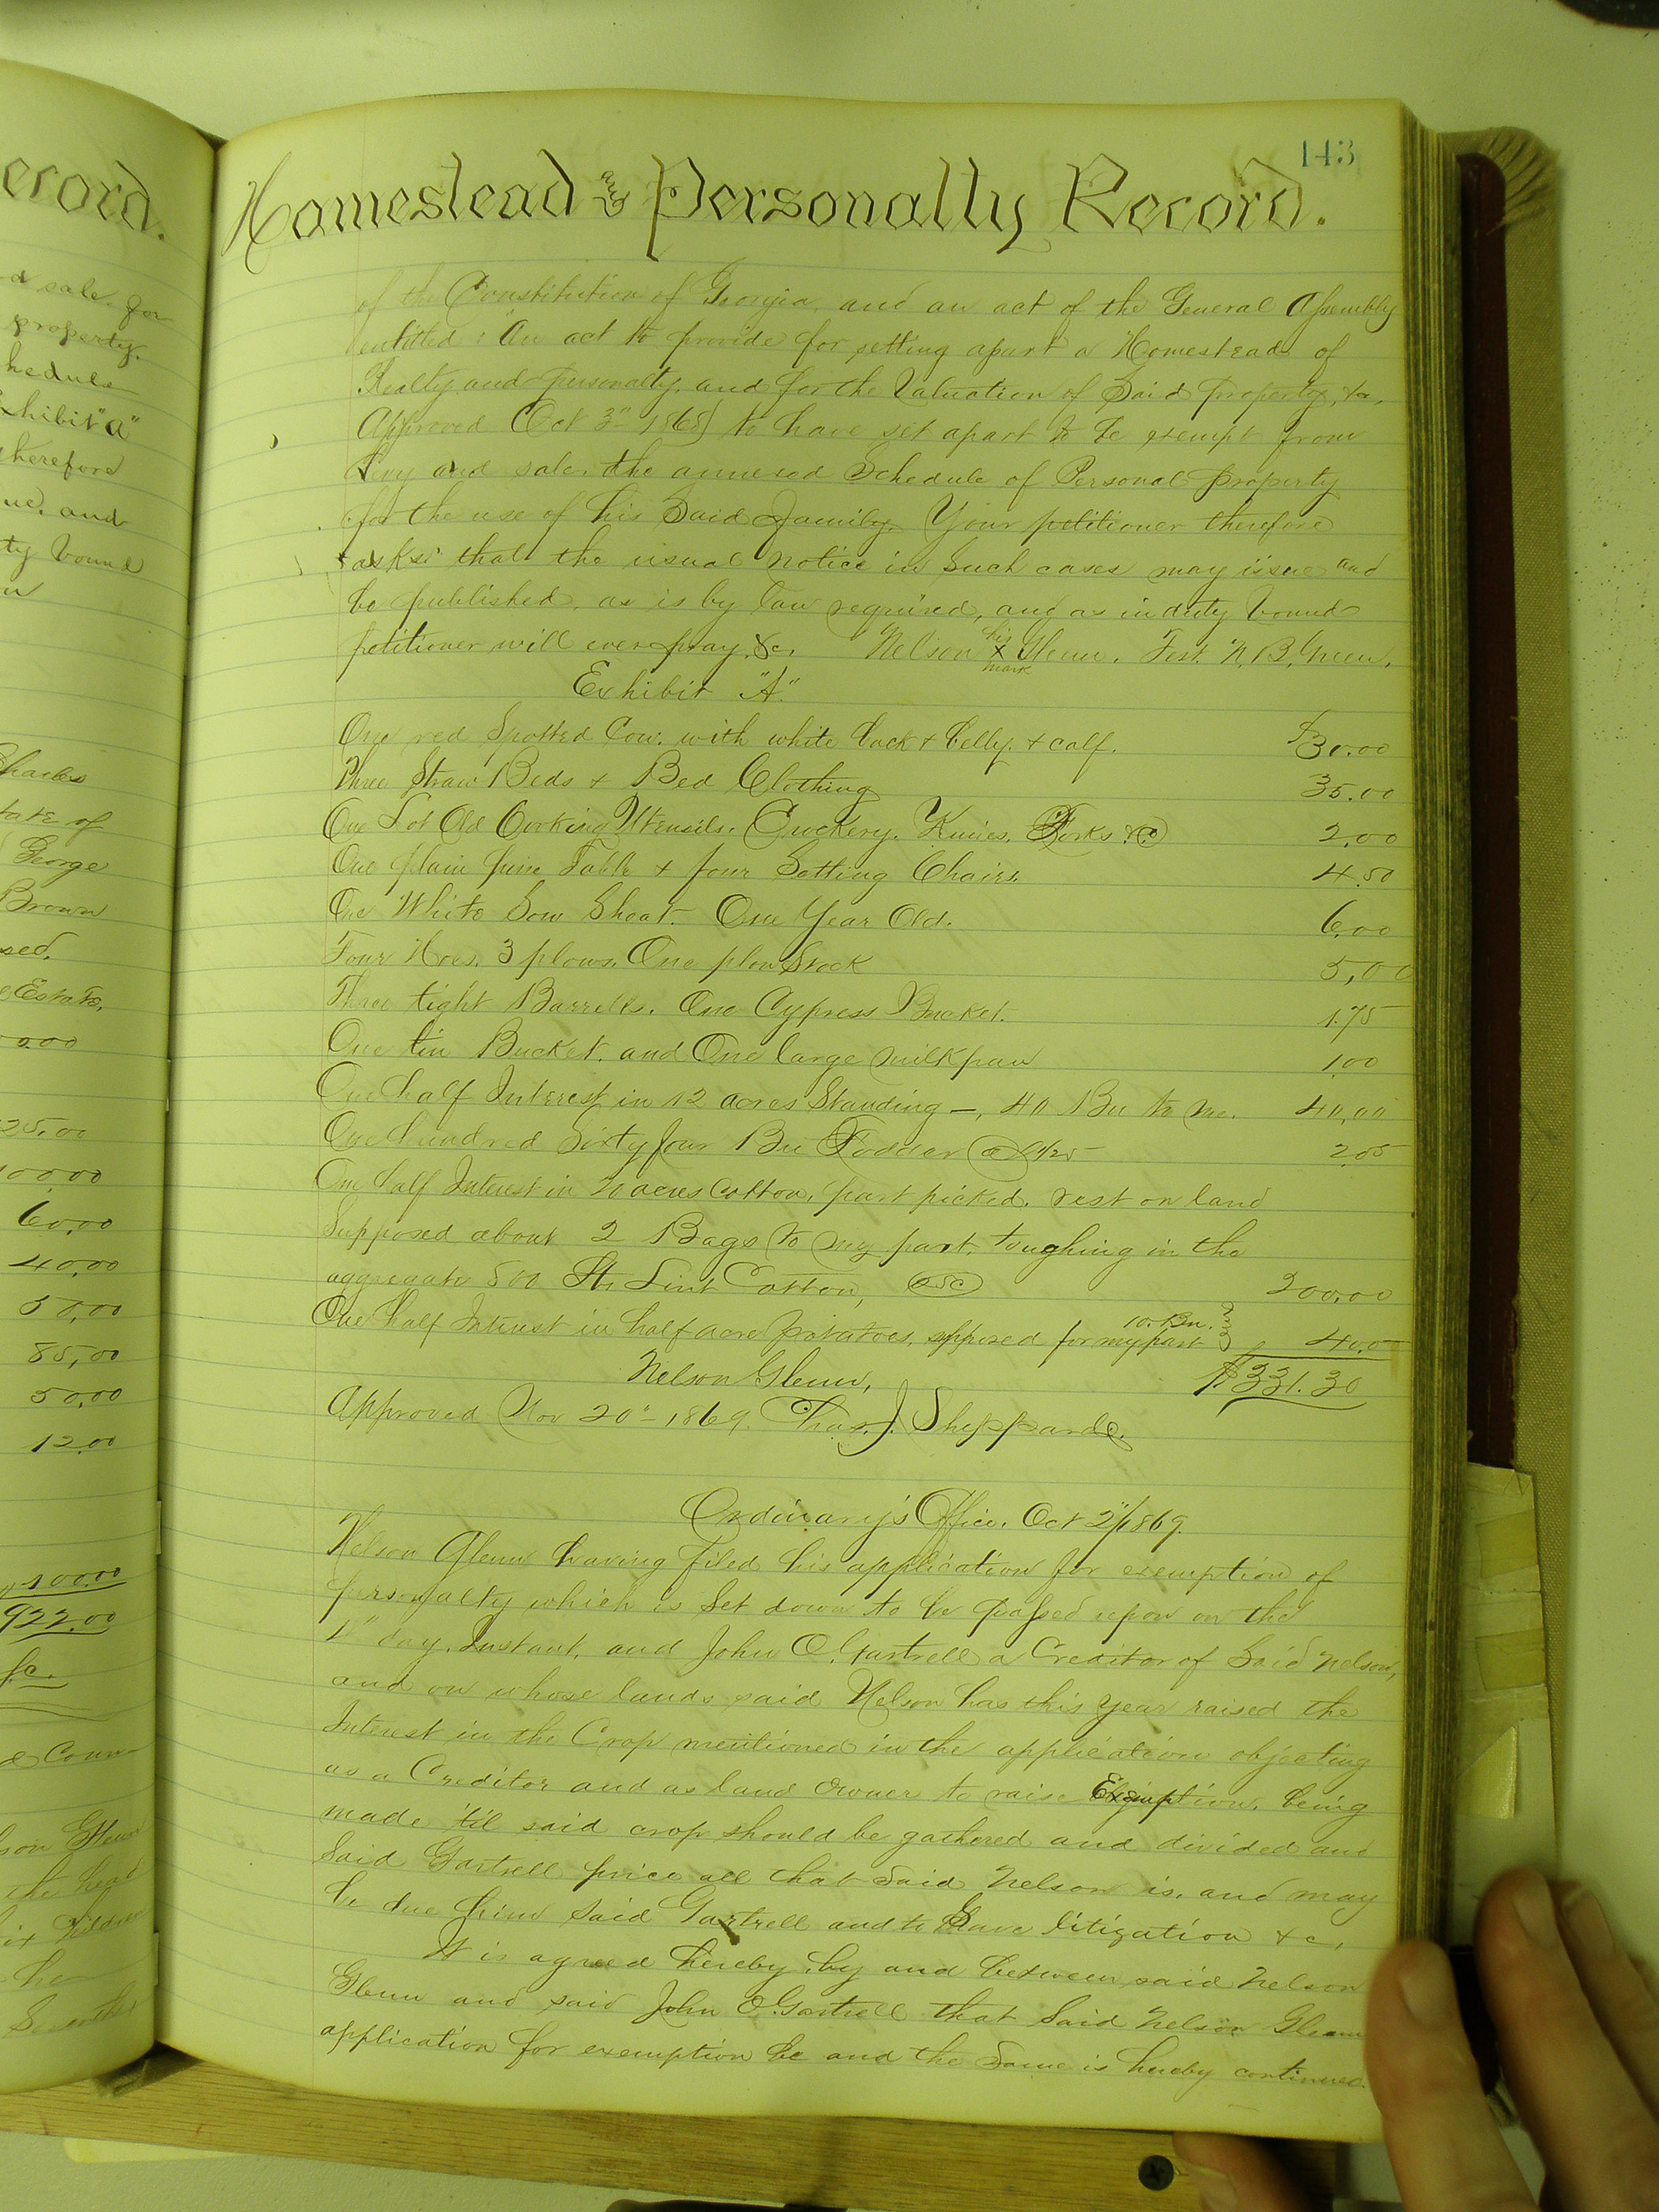 ecord.
d sale for
property.
hedule
xhibit "a"
therefore
ue, and
ty bound
Charles
tate of
George
Brown
sed.
Estate,
0.00
25.00
100.00
60.00
40.00
50.00
85,00
50.00
12.00
100.00
922.00
fc.
& Coun
son Glenn
the head
143
Homestead and Personalty Record.
of the Constitution of Georgia, and an act of the General Assembly
entitled: "An act to provide for setting apart a Homestead of
Realty and personalty, and for the Valuation of Said property, &c,
Approved (Oct 3" 1868) to have set apart to be exempt from
Levy and sale, the annexed Schedule of Personal Property
for the use of his Said Family. Your petitioner therefore
asks: that the usual notice in such cases may issue and
be published, as is by law required, and as in duty bound
petitioner will ever pray, &c, Nelson his X mark Glenn. Test. N. B. Green.
Exhibit "A."
One red Spotted Cow, with white back & belly, & calf. $30.00
Three Straw Beds & Bed Clothing 35.00
One Lot Old Cooking Utensils, Crockery, Knives, Forks &c 2.00
One plain pine Table & four Setting Chairs. 4.50
One White Sow Shoat - One Year Old. 6.00
Four Hoes, 3 plows, One plow Stock 5,00
Three tight Barrells, One Cypress Bucket. 1.75
One tin Bucket, and One large milkpan 1.00
One half Interest in 12 acres Standing —, 40 Bu to me. 40,00
One hundred Sixty four Bu Fodder @ 1/25 2.05
One half Interest in 20 acres Cotton, part picked, rest on land
Supposed about 2 Bags to my part, toughing in the
aggregate 800 lbs Lint Cotton, @25c 200.00
One half Interest in half acre Potatoes, supposed for my part 10. Bu. 4.00
Nelson Glenn, $331.30
Approved Nov 20" - 1869. Chas. J. Sheppard.
Ordinary's Office, Oct 21/1869.
Nelson Glenn having filed his application for exemption of
personalty which is Set down to be passed upon on the
day, Instant, and John O. Gartrell a Creditor of Said Nelson,
and on whose lands said Nelson has this year raised the
Interest in the Crop mentioned in the application objecting
as a Creditor and as land owner to raise Exemption, being
made 'til said crop should be gathered and divided and
Said Gartrell price all that Said Nelson is, and may
be due him Said Gartrell and to Save litigation &c,
It is agreed hereby, by and between said Nelson
Glenn and said John O. Gartrell that Said Nelson Glenn
application for exemption be and the Same is hereby continued.